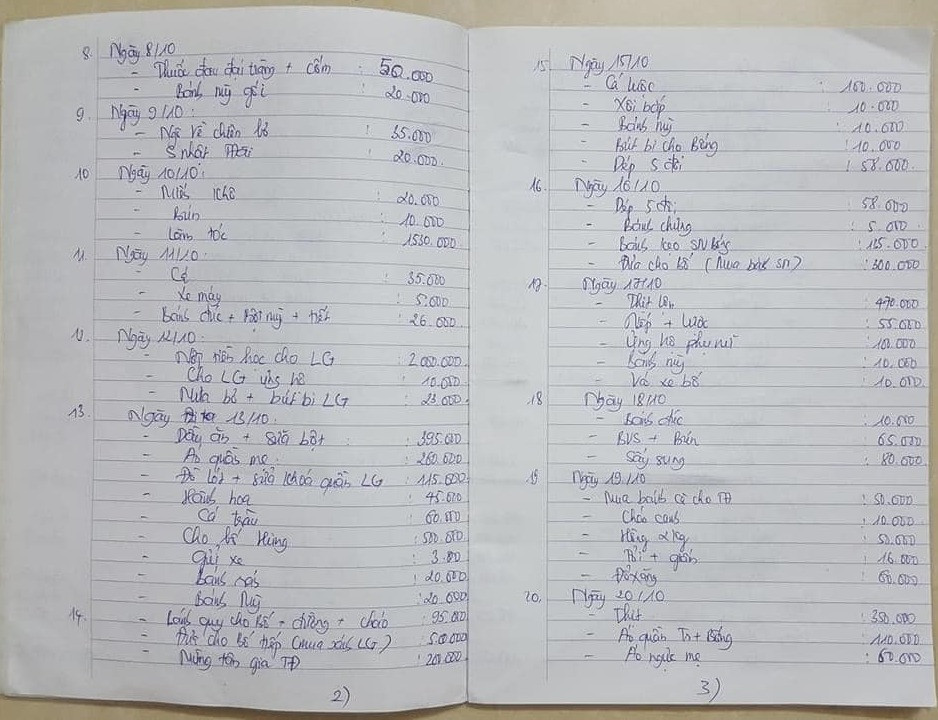 8. Ngày 8/10
- Thuốc đau đại tràng + cốm : 50.000
- Bánh mỳ gối : 20.000
9. Ngày 9/10 :
- Ngô về chiên bơ : 35.000
- S nhật : 20.000
10 Ngày 10/10 :
- Miến khô : 20.000
- Bún : 10.000
- Làm tóc : 1530.000
11. Ngày 11/10 :
- Cá : 35.000
- Xe máy : 5.000
- Bánh đúc + mỳ + tiết : 26.000
12. Ngày 12/10 :
- Nộp tiền học cho LG : 2000.000
- Cho LG ủng hộ : 10.000
- Mua bơ + bút bi LG : 23.000
13. Ngày 13/10.
- Dầu ăn + sữa bột : 395.000
- Áo quần mẹ : 260.000
- Đồ lót + sửa khoá quần LG : 115.000
- Hành hoa : 45.000
- Cá trầu : 60.000
- Cho bố Hùng : 500.000
- Gửi xe : 3.000
- Bánh : 20.000
- Bánh Mỳ : 20.000
14. - Bánh quy cho Bố + chừng + cháo : 95.000
- Đưa cho Bố tiếp (mua LG) : 500.000
- Mừng tân gia TĐ : 200.000
2)
15 Ngày 15/10
- Cá lước : 100.000
- Xôi bắp : 10.000
- Bánh mỳ : 10.000
- Bút bi cho Bống : 10.000
- Dép 5 đôi : 58.000
16. Ngày 16/10
- Dép 5 đôi : 58.000
- Bánh chưng : 5.000
- Bánh kẹo SN Bống : 125.000
- Đưa cho bố (Mua bánh SN) : 300.000
17. Ngày 17/10
- Thịt lợn : 470.000
- Nếp + lước : 55.000
- Ủng hộ phụ nữ : 100.000
- Bánh mỳ : 10.000
- Vá xe bố : 10.000
18 Ngày 18/10
- Bánh đúc : 10.000
- BVS + Bún : 65.000
- Sấy sung : 80.000
19 Ngày 19/10
- Mua bánh cho TĐ : 50.000
- Cháo canh : 10.000
- Hồng 2kg : 50.000
- + giần : 16.000
- Đổ xăng : 60.000
20. Ngày 20/10
- Thịt : 350.000
- Áo quần Tn + Bống : 110.000
- Áo ngực mẹ : 60.000
3)